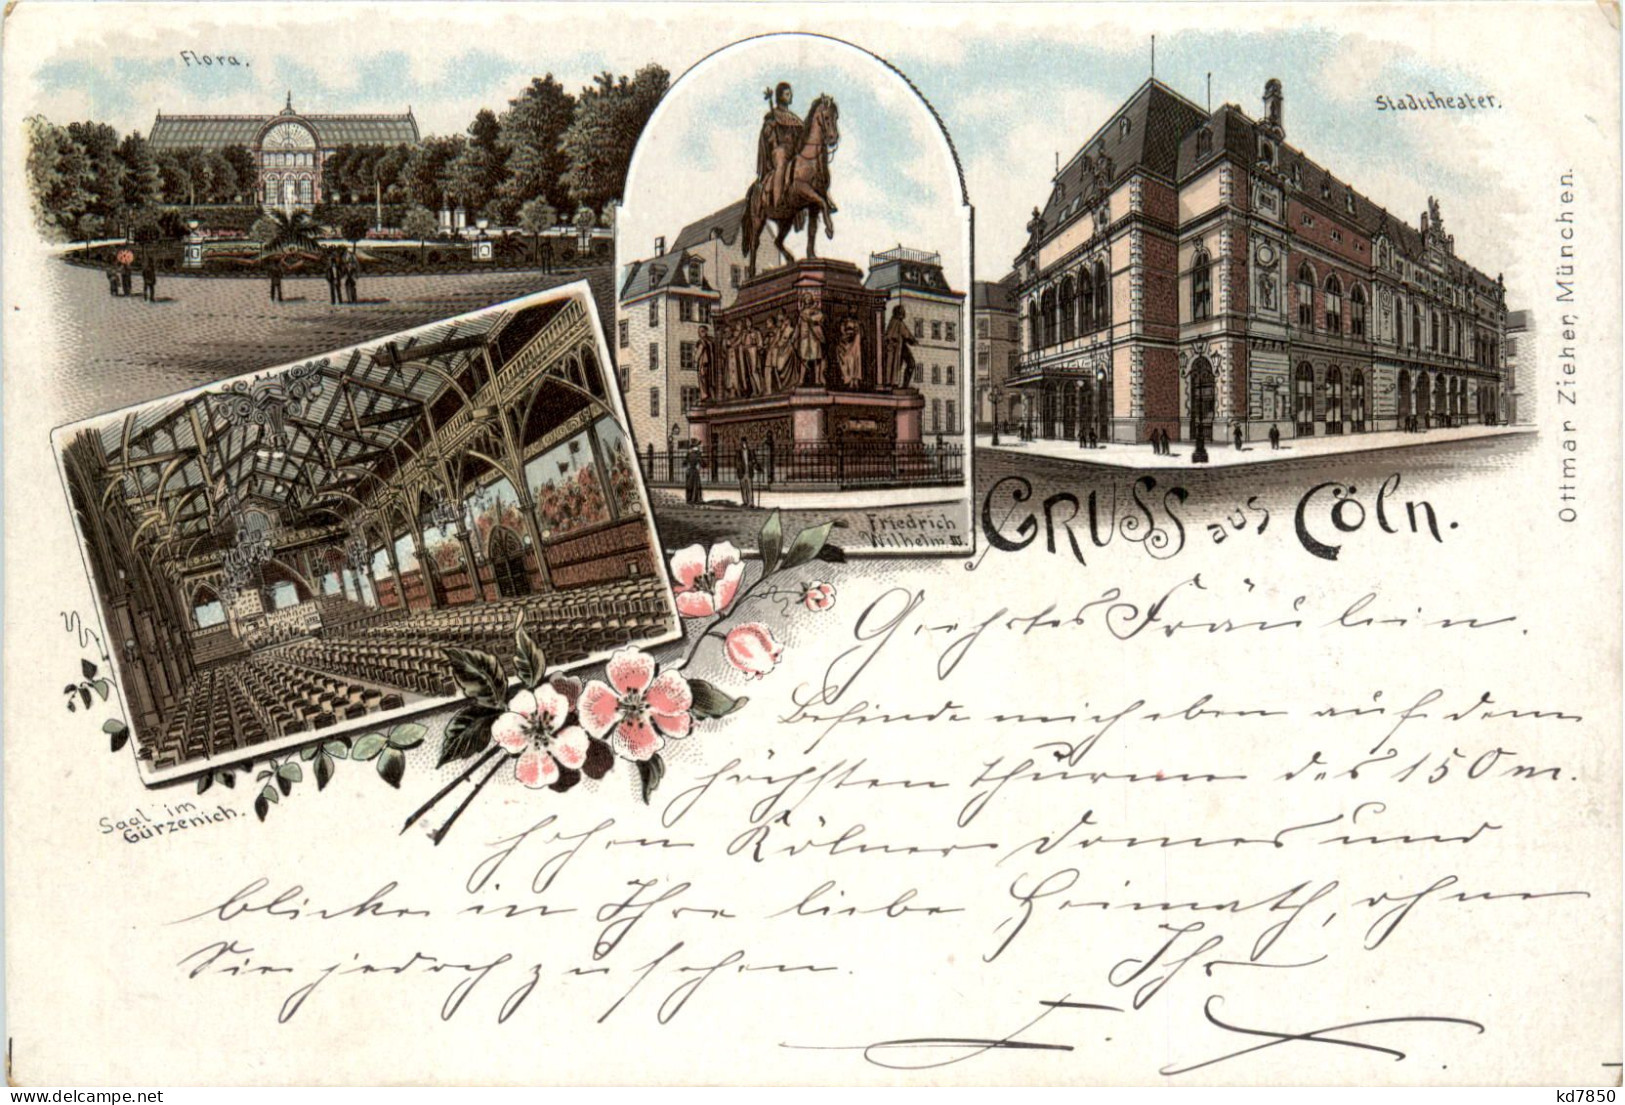 Flora.
Stadttheater.
Ottmar Zieher, München.
Friedrich
Wilhelm III.
GRUSS aus Cöln.
Saal im
Gürzenich.
Geehrtes Fräulein.
Befinde mich eben auf dem
höchsten Thurme des 150 m.
hohen Kölner Domes und
blicke in Ihre liebe Heimath, ohne
Sie jedoch zu sehen. Ihr
kd7850